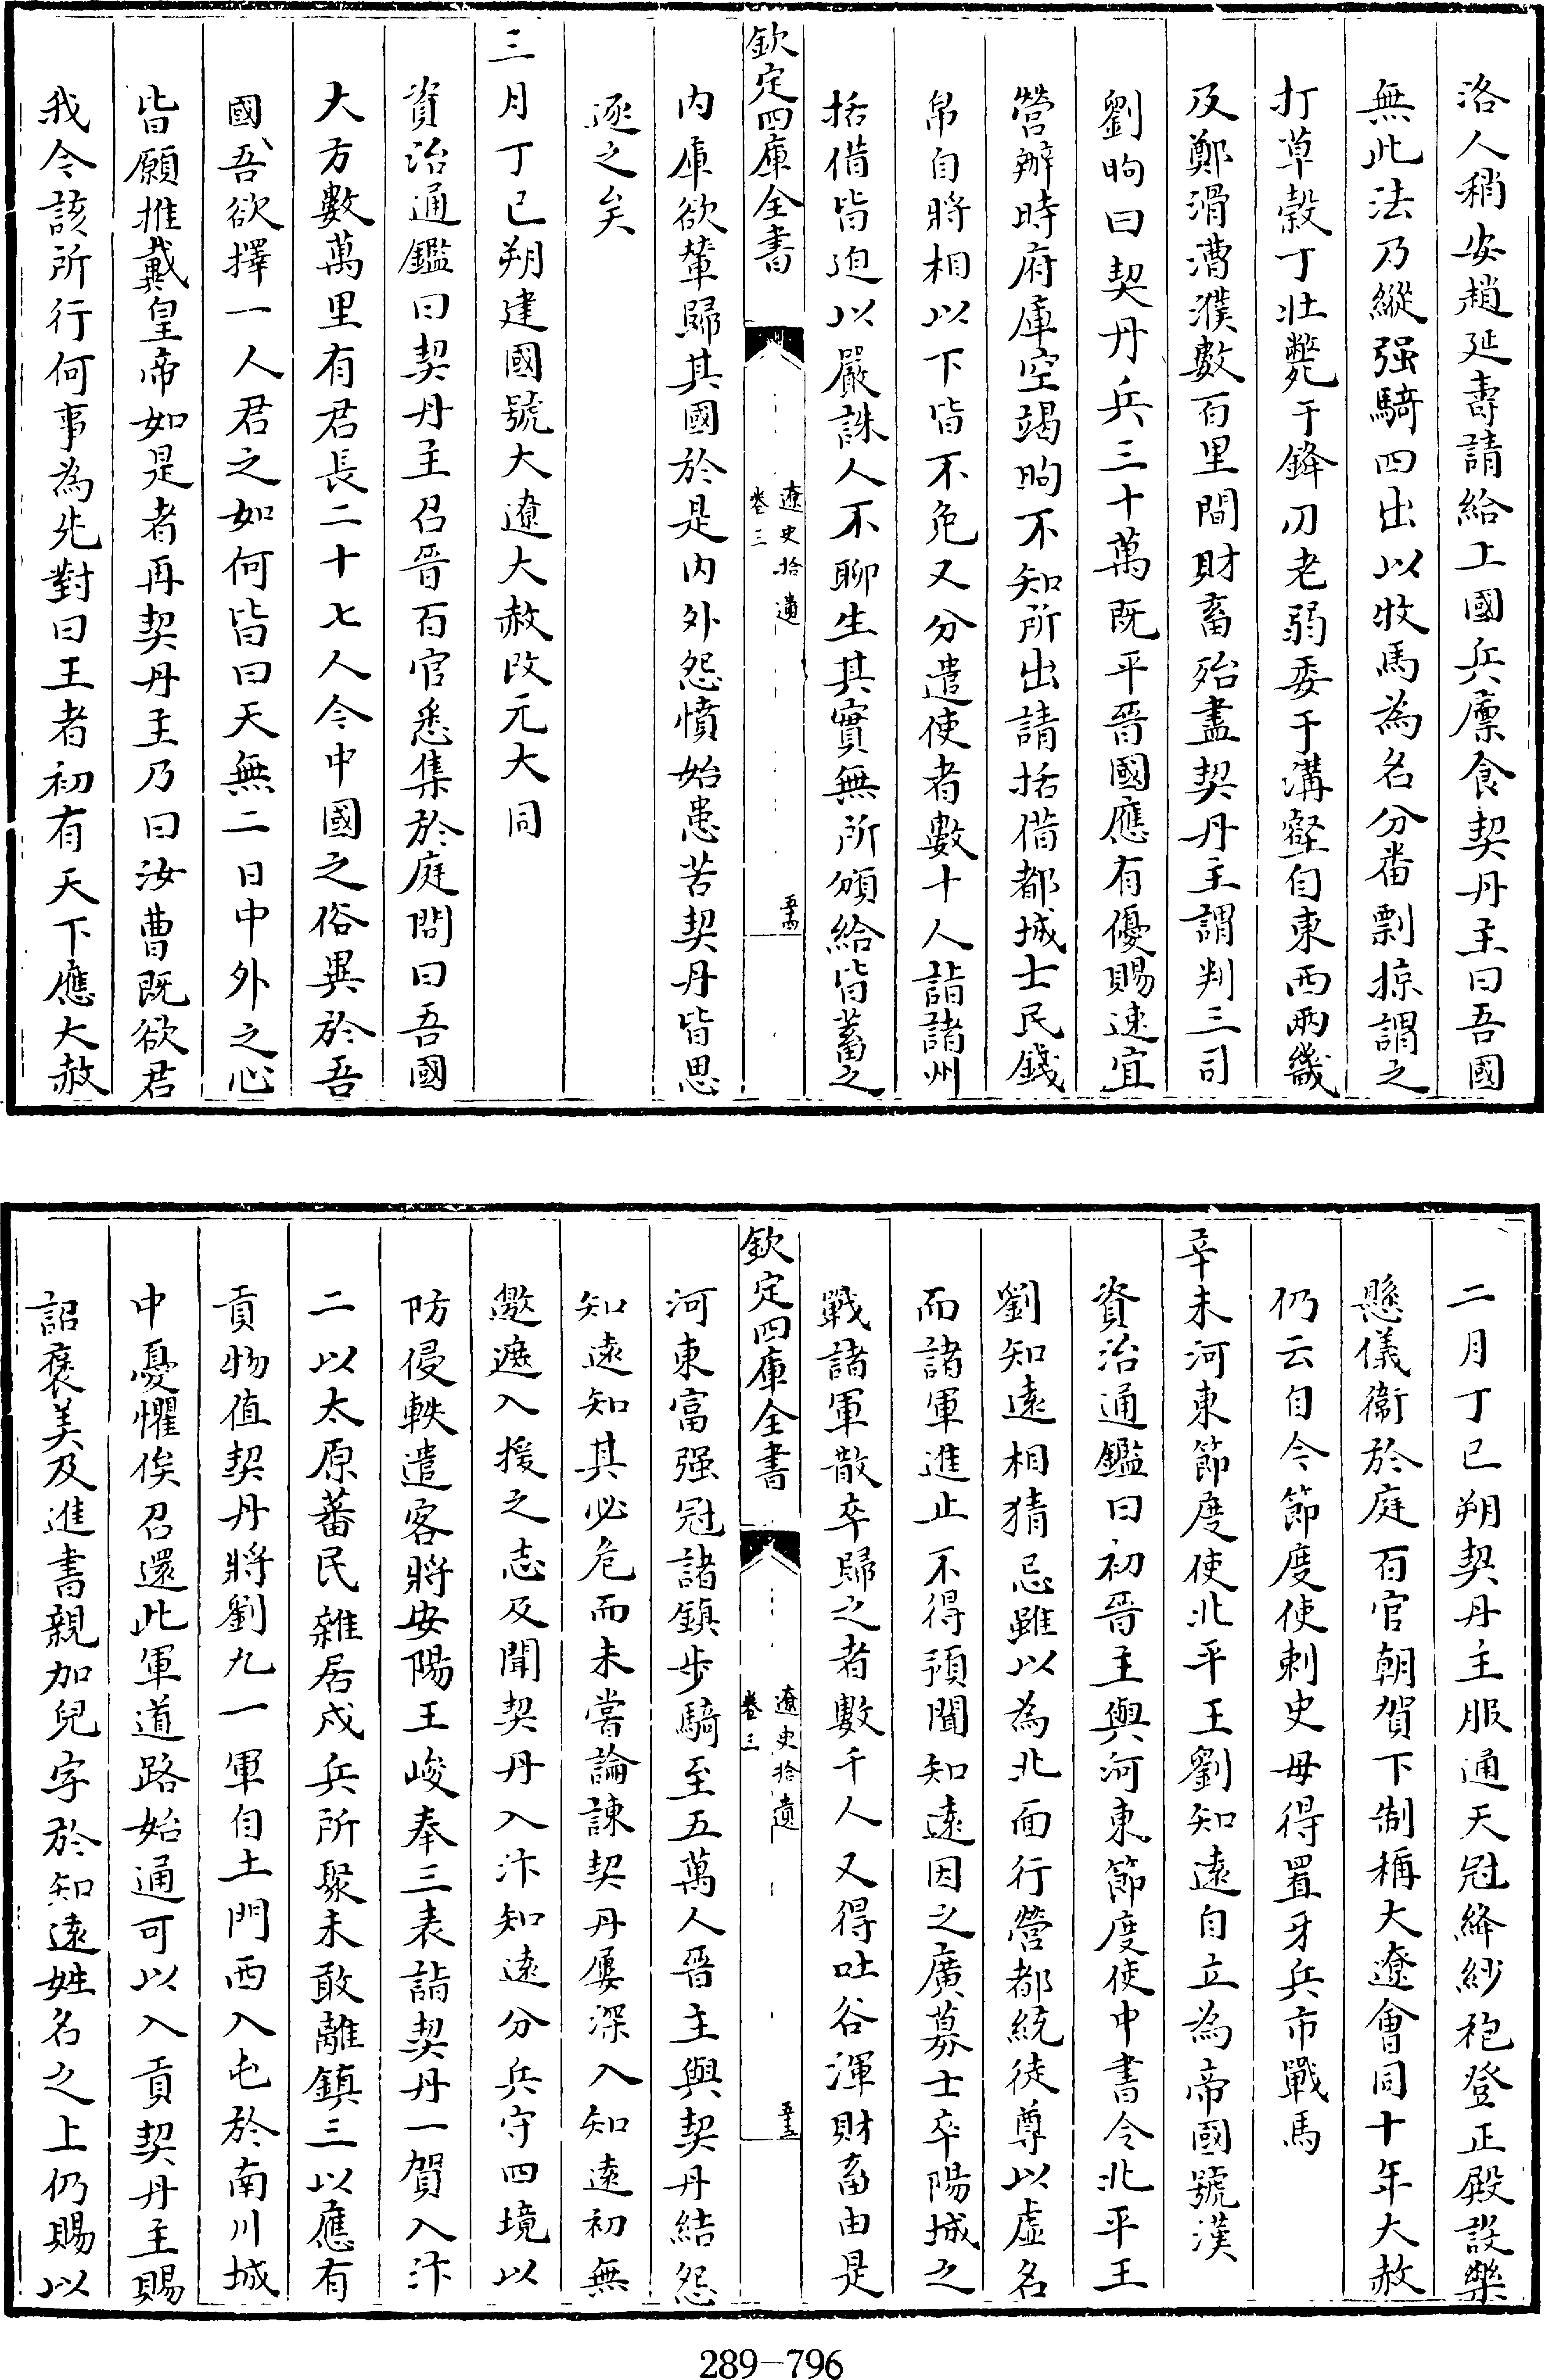 洛人稍安趙延壽請給上國兵廩食契丹主曰吾國
無此法乃縱强騎四出以牧馬為名分番剽掠謂之
打草穀丁壯斃于鋒刃老弱委于溝壑自東西兩畿
及鄭滑漕濮數百里間財畜殆盡契丹主謂判三司
劉昫曰契丹兵三十萬既平晉國應有優賜速宜
營辦時府庫空竭昫不知所出請括借都城士民錢
帛自將相以下皆不免又分遣使者數十人詣諸州
括借皆迫以嚴誅人不聊生其實無所頒給皆蓄之
欽定四庫全書
遼史拾遺
卷三
五十四
内庫欲輦歸其國於是内外怨憤始患苦契丹皆思
逐之矣
三月丁巳朔建國號大遼大赦改元大同
資治通鑑曰契丹主召晉百官悉集於庭問曰吾國
大方數萬里有君長二十七人今中國之俗異於吾
國吾欲擇一人君之如何皆曰天無二日中外之心
皆願推戴皇帝如是者再契丹主乃曰汝曹既欲君
我今該所行何事為先對曰王者初有天下應大赦
二月丁巳朔契丹主服通天冠絳紗袍登正殿設樂
懸儀衞於庭百官朝賀下制稱大遼會同十年大赦
仍云自今節度使刺史毋得置牙兵市戰馬
辛未河東節度使北平王劉知遠自立為帝國號漢
資治通鑑曰初晉主與河東節度使中書令北平王
劉知遠相猜忌雖以為北面行營都統徒尊以虚名
而諸軍進止不得預聞知遠因之廣募士卒陽城之
戰諸軍散卒歸之者數千人又得吐谷渾財畜由是
欽定四庫全書
遼史拾遺
卷三
五十五
河東富强冠諸鎮步騎至五萬人晉主與契丹結怨
知遠知其必危而未嘗論諫契丹屢深入知遠初無
邀遮入援之志及聞契丹入汴知遠分兵守四境以
防侵軼遣客將安陽王峻奉三表詣契丹一賀入汴
二以太原蕃民雜居戍兵所聚未敢離鎮三以應有
貢物值契丹將劉九一軍自土門西入屯於南川城
中憂懼俟召還此軍道路始通可以入貢契丹主賜
詔褒美及進書親加兒字於知遠姓名之上仍賜以
289-796